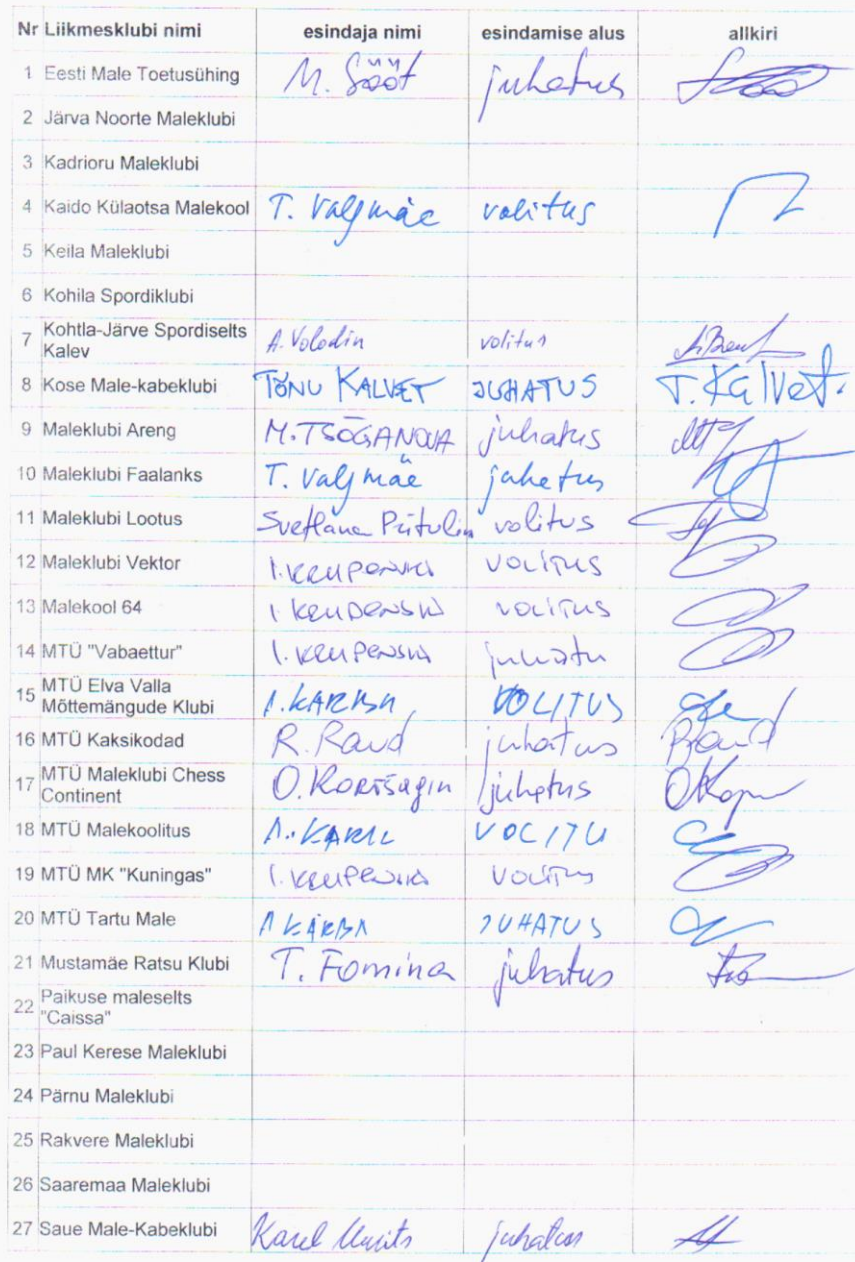 Nr Liikmesklubi nimi esindaja nimi esindamise alus allkiri
1 Eesti Male Toetusühing M. Sööt juhatus
2 Järva Noorte Maleklubi
3 Kadrioru Maleklubi
4 Kaido Külaotsa Malekool T. Valgmäe volitus
5 Keila Maleklubi
6 Kohila Spordiklubi
7 Kohtla-Järve Spordiselts
Kalev A. Volodin volitus
8 Kose Male-kabeklubi TÕNU KALVET JUHATUS T. Kalvet.
9 Maleklubi Areng M. TSÕGANOVA juhatus
10 Maleklubi Faalanks T. Valgmäe juhatus
11 Maleklubi Lootus Svetlana Piitulin volitus
12 Maleklubi Vektor I. KRUPENSKI VOLITUS
13 Malekool 64 I KRUPENSKI VOLITUS
14 MTÜ "Vabaettur" I. KRUPENSKI juhatu
15 MTÜ Elva Valla
Mõttemängude Klubi VOLITUS
16 MTÜ Kaksikodad R. Raud juhatus Raud
17 MTÜ Maleklubi Chess
Continent O. Kortšagin juhatus
18 MTÜ Malekoolitus VOLITU
19 MTÜ MK "Kuningas" I. KRUPENSKI VOLITUS
20 MTÜ Tartu Male A KÄRBA JUHATUS
21 Mustamäe Ratsu Klubi T. Fomina juhatus
22 Paikuse maleselts
"Caissa"
23 Paul Kerese Maleklubi
24 Pärnu Maleklubi
25 Rakvere Maleklubi
26 Saaremaa Maleklubi
27 Saue Male-Kabeklubi Karel juhatus